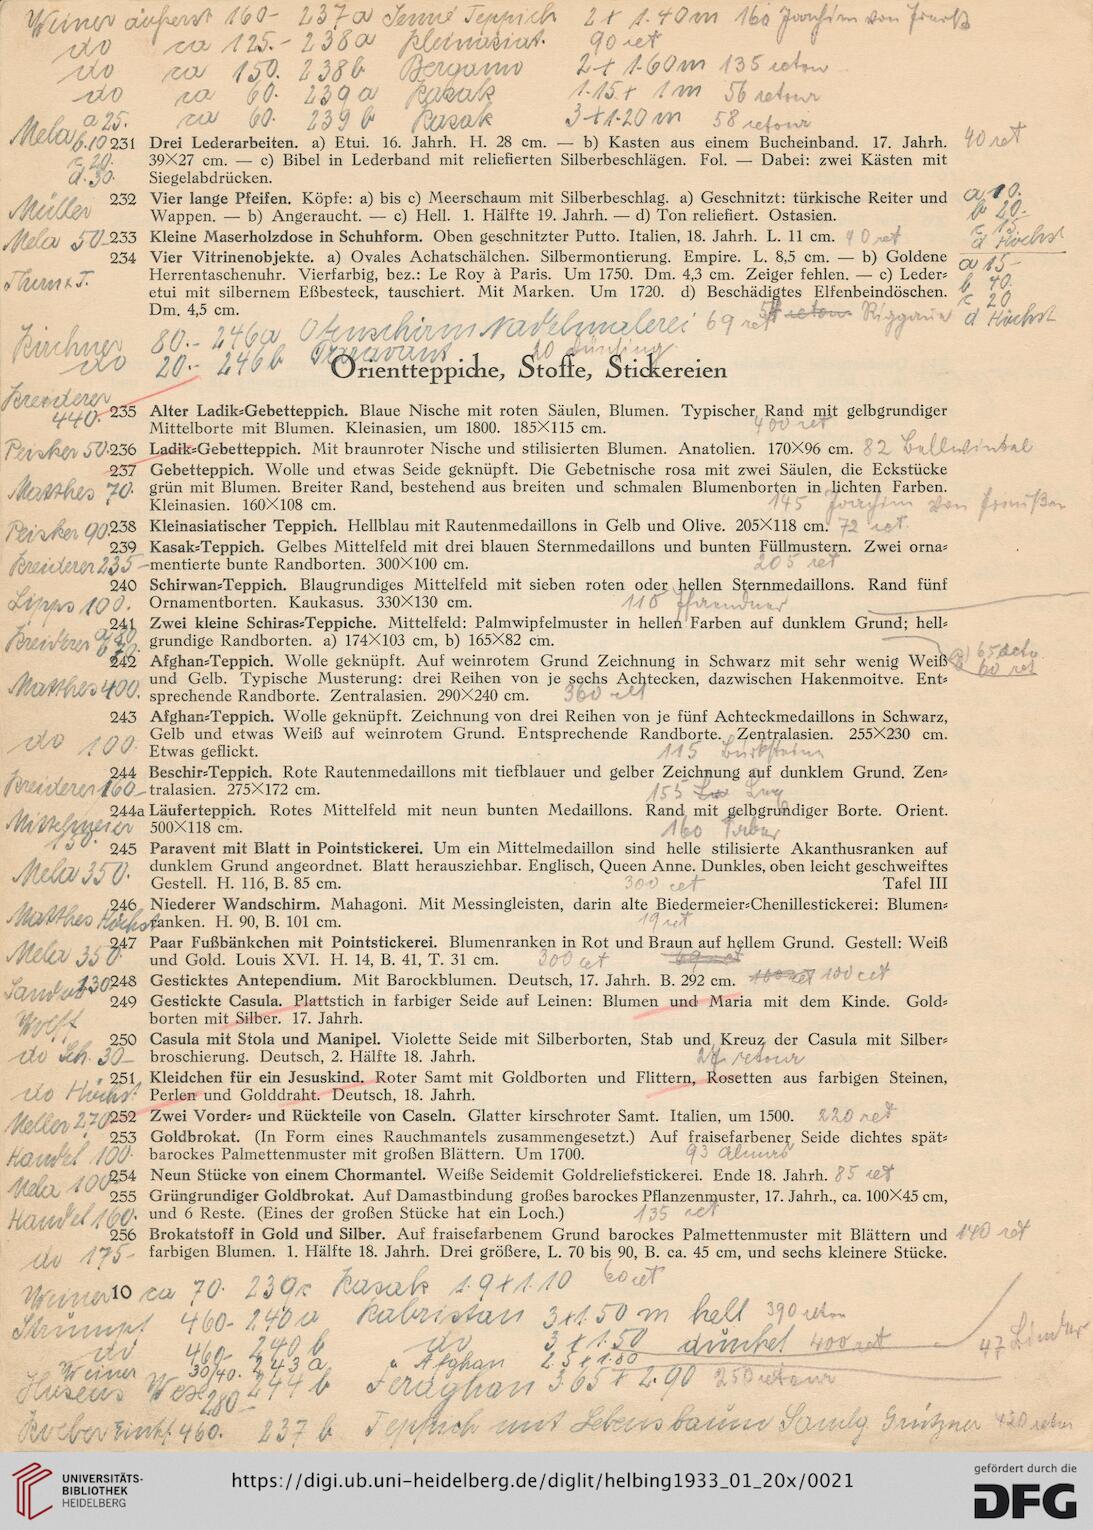 Weiner äußerst 160- 237a Senné Teppich 2 x 1.40 m 160 Joachim von
do ca 125.- 238a Kleinasiat. 90 ret
do ca 150. 238b Bergamo 2 x 1.60 m 135 retour
do ca 60. 239a Kasak 1.15 x 1 m 56 retour
ca 60. 239b Kasak 3 x 1.20 m 58 retour
Mela a 25. b.10 c 20. d.30.
231 Drei Lederarbeiten. a) Etui. 16. Jahrh. H. 28 cm. — b) Kasten aus einem Bucheinband. 17. Jahrh. 40 ret
39×27 cm. — c) Bibel in Lederband mit reliefierten Silberbeschlägen. Fol. — Dabei: zwei Kästen mit
Siegelabdrücken.
Müller 232 Vier lange Pfeifen. Köpfe: a) bis c) Meerschaum mit Silberbeschlag. a) Geschnitzt: türkische Reiter und a 10.
Wappen. — b) Angeraucht. — c) Hell. 1. Hälfte 19. Jahrh. — d) Ton reliefiert. Ostasien. b 20.- c 15. d Höchst
Mela 50- 233 Kleine Maserholzdose in Schuhform. Oben geschnitzter Putto. Italien, 18. Jahrh. L. 11 cm. 40 ret
234 Vier Vitrinenobjekte. a) Ovales Achatschälchen. Silbermontierung. Empire. L. 8,5 cm. — b) Goldene a 15-
Herrentaschenuhr. Vierfarbig, bez.: Le Roy à Paris. Um 1750. Dm. 4,3 cm. Zeiger fehlen. — c) Leder= b 40.
etui mit silbernem Eßbesteck, tauschiert. Mit Marken. Um 1720. d) Beschädigtes Elfenbeindöschen. c 20
Dm. 4,5 cm. d Höchst
Kirchner 80.- 246a Ofenschirm Nadelmalerei 69 ret
do 20.- 246b Paravant
Orientteppiche, Stoffe, Stickereien
Breiderer 440.
235 Alter Ladik=Gebetteppich. Blaue Nische mit roten Säulen, Blumen. Typischer Rand mit gelbgrundiger
Mittelborte mit Blumen. Kleinasien, um 1800. 185×115 cm. 400 ret
Peisker 50 236 Ladik=Gebetteppich. Mit braunroter Nische und stilisierten Blumen. Anatolien. 170×96 cm. 82 Ballwinkel
237 Gebetteppich. Wolle und etwas Seide geknüpft. Die Gebetnische rosa mit zwei Säulen, die Eckstücke
Matthes 70. grün mit Blumen. Breiter Rand, bestehend aus breiten und schmalen Blumenborten in lichten Farben.
Kleinasien. 160×108 cm. 145 Joachim von
Peisker 90. 238 Kleinasiatischer Teppich. Hellblau mit Rautenmedaillons in Gelb und Olive. 205×118 cm. 72 ret.
239 Kasak=Teppich. Gelbes Mittelfeld mit drei blauen Sternmedaillons und bunten Füllmustern. Zwei orna=
Breiderer 235- mentierte bunte Randborten. 300×100 cm. 205 ret
240 Schirwan=Teppich. Blaugrundiges Mittelfeld mit sieben roten oder hellen Sternmedaillons. Rand fünf
Lipps 100. Ornamentborten. Kaukasus. 330×130 cm. 110
241 Zwei kleine Schiras=Teppiche. Mittelfeld: Palmwipfelmuster in hellen Farben auf dunklem Grund; hell=
Breiderer grundige Randborten. a) 174×103 cm, b) 165×82 cm.
242 Afghan=Teppich. Wolle geknüpft. Auf weinrotem Grund Zeichnung in Schwarz mit sehr wenig Weiß 60 ret
Matthes 400. und Gelb. Typische Musterung: drei Reihen von je sechs Achtecken, dazwischen Hakenmoitve. Ent=
sprechende Randborte. Zentralasien. 290×240 cm. 360 ret
243 Afghan=Teppich. Wolle geknüpft. Zeichnung von drei Reihen von je fünf Achteckmedaillons in Schwarz,
do 100. Gelb und etwas Weiß auf weinrotem Grund. Entsprechende Randborte. Zentralasien. 255×230 cm.
Etwas geflickt. 115
244 Beschir=Teppich. Rote Rautenmedaillons mit tiefblauer und gelber Zeichnung auf dunklem Grund. Zen=
Breiderer 160- tralasien. 275×172 cm. 155
244a Läuferteppich. Rotes Mittelfeld mit neun bunten Medaillons. Rand mit gelbgrundiger Borte. Orient.
Mittelmeier 150. 500×118 cm. 160
245 Paravent mit Blatt in Pointstickerei. Um ein Mittelmedaillon sind helle stilisierte Akanthusranken auf
Mela 350. dunklem Grund angeordnet. Blatt herausziehbar. Englisch, Queen Anne. Dunkles, oben leicht geschweiftes
Gestell. H. 116, B. 85 cm. 300 ret Tafel III
246 Niederer Wandschirm. Mahagoni. Mit Messingleisten, darin alte Biedermeier=Chenillestickerei: Blumen=
Matthes Höchst ranken. H. 90, B. 101 cm. 19 ret
247 Paar Fußbänkchen mit Pointstickerei. Blumenranken in Rot und Braun auf hellem Grund. Gestell: Weiß
Mela 350 und Gold. Louis XVI. H. 14, B. 41, T. 31 cm. 300 ret
130 248 Gesticktes Antependium. Mit Barockblumen. Deutsch, 17. Jahrh. B. 292 cm. 100 ret
249 Gestickte Casula. Plattstich in farbiger Seide auf Leinen: Blumen und Maria mit dem Kinde. Gold=
Wolff borten mit Silber. 17. Jahrh.
250 Casula mit Stola und Manipel. Violette Seide mit Silberborten, Stab und Kreuz der Casula mit Silber=
do Sch. 30- broschierung. Deutsch, 2. Hälfte 18. Jahrh. 27 retour
251 Kleidchen für ein Jesuskind. Roter Samt mit Goldborten und Flittern, Rosetten aus farbigen Steinen,
do Höchst Perlen und Golddraht. Deutsch, 18. Jahrh.
270 252 Zwei Vorder= und Rückteile von Caseln. Glatter kirschroter Samt. Italien, um 1500. 220 ret
253 Goldbrokat. (In Form eines Rauchmantels zusammengesetzt.) Auf fraisefarbener Seide dichtes spät=
Handel 100. barockes Palmettenmuster mit großen Blättern. Um 1700. 93
Mela 100 254 Neun Stücke von einem Chormantel. Weiße Seidemit Goldreliefstickerei. Ende 18. Jahrh. 85 ret
255 Grüngrundiger Goldbrokat. Auf Damastbindung großes barockes Pflanzenmuster, 17. Jahrh., ca. 100×45 cm,
Handel 160. und 6 Reste. (Eines der großen Stücke hat ein Loch.) 135 ret
256 Brokatstoff in Gold und Silber. Auf fraisefarbenem Grund barockes Palmettenmuster mit Blättern und 140 ret
do 175- farbigen Blumen. 1. Hälfte 18. Jahrh. Drei größere, L. 70 bis 90, B. ca. 45 cm, und sechs kleinere Stücke.
10
Weiner ca 70. 239c Kasak 1.9 x 1.10 60 ret
460- 240a Kabristan 3 x 1.50 m hell 390 retour
do 460- 240b do 3 x 1.50 dunkel 400 ret
Weiner 30/40. 243a Afghan 2.5 x 1.80 47 Linder
280- 244b Feraghan 3.65 x 2.90 250 retour
460. 237b Teppich mit Lebensbaum Samlg Grützner 420 retour
UNIVERSITÄTS-
BIBLIOTHEK
HEIDELBERG
https://digi.ub.uni-heidelberg.de/diglit/helbing1933_01_20x/0021
gefördert durch die
DFG